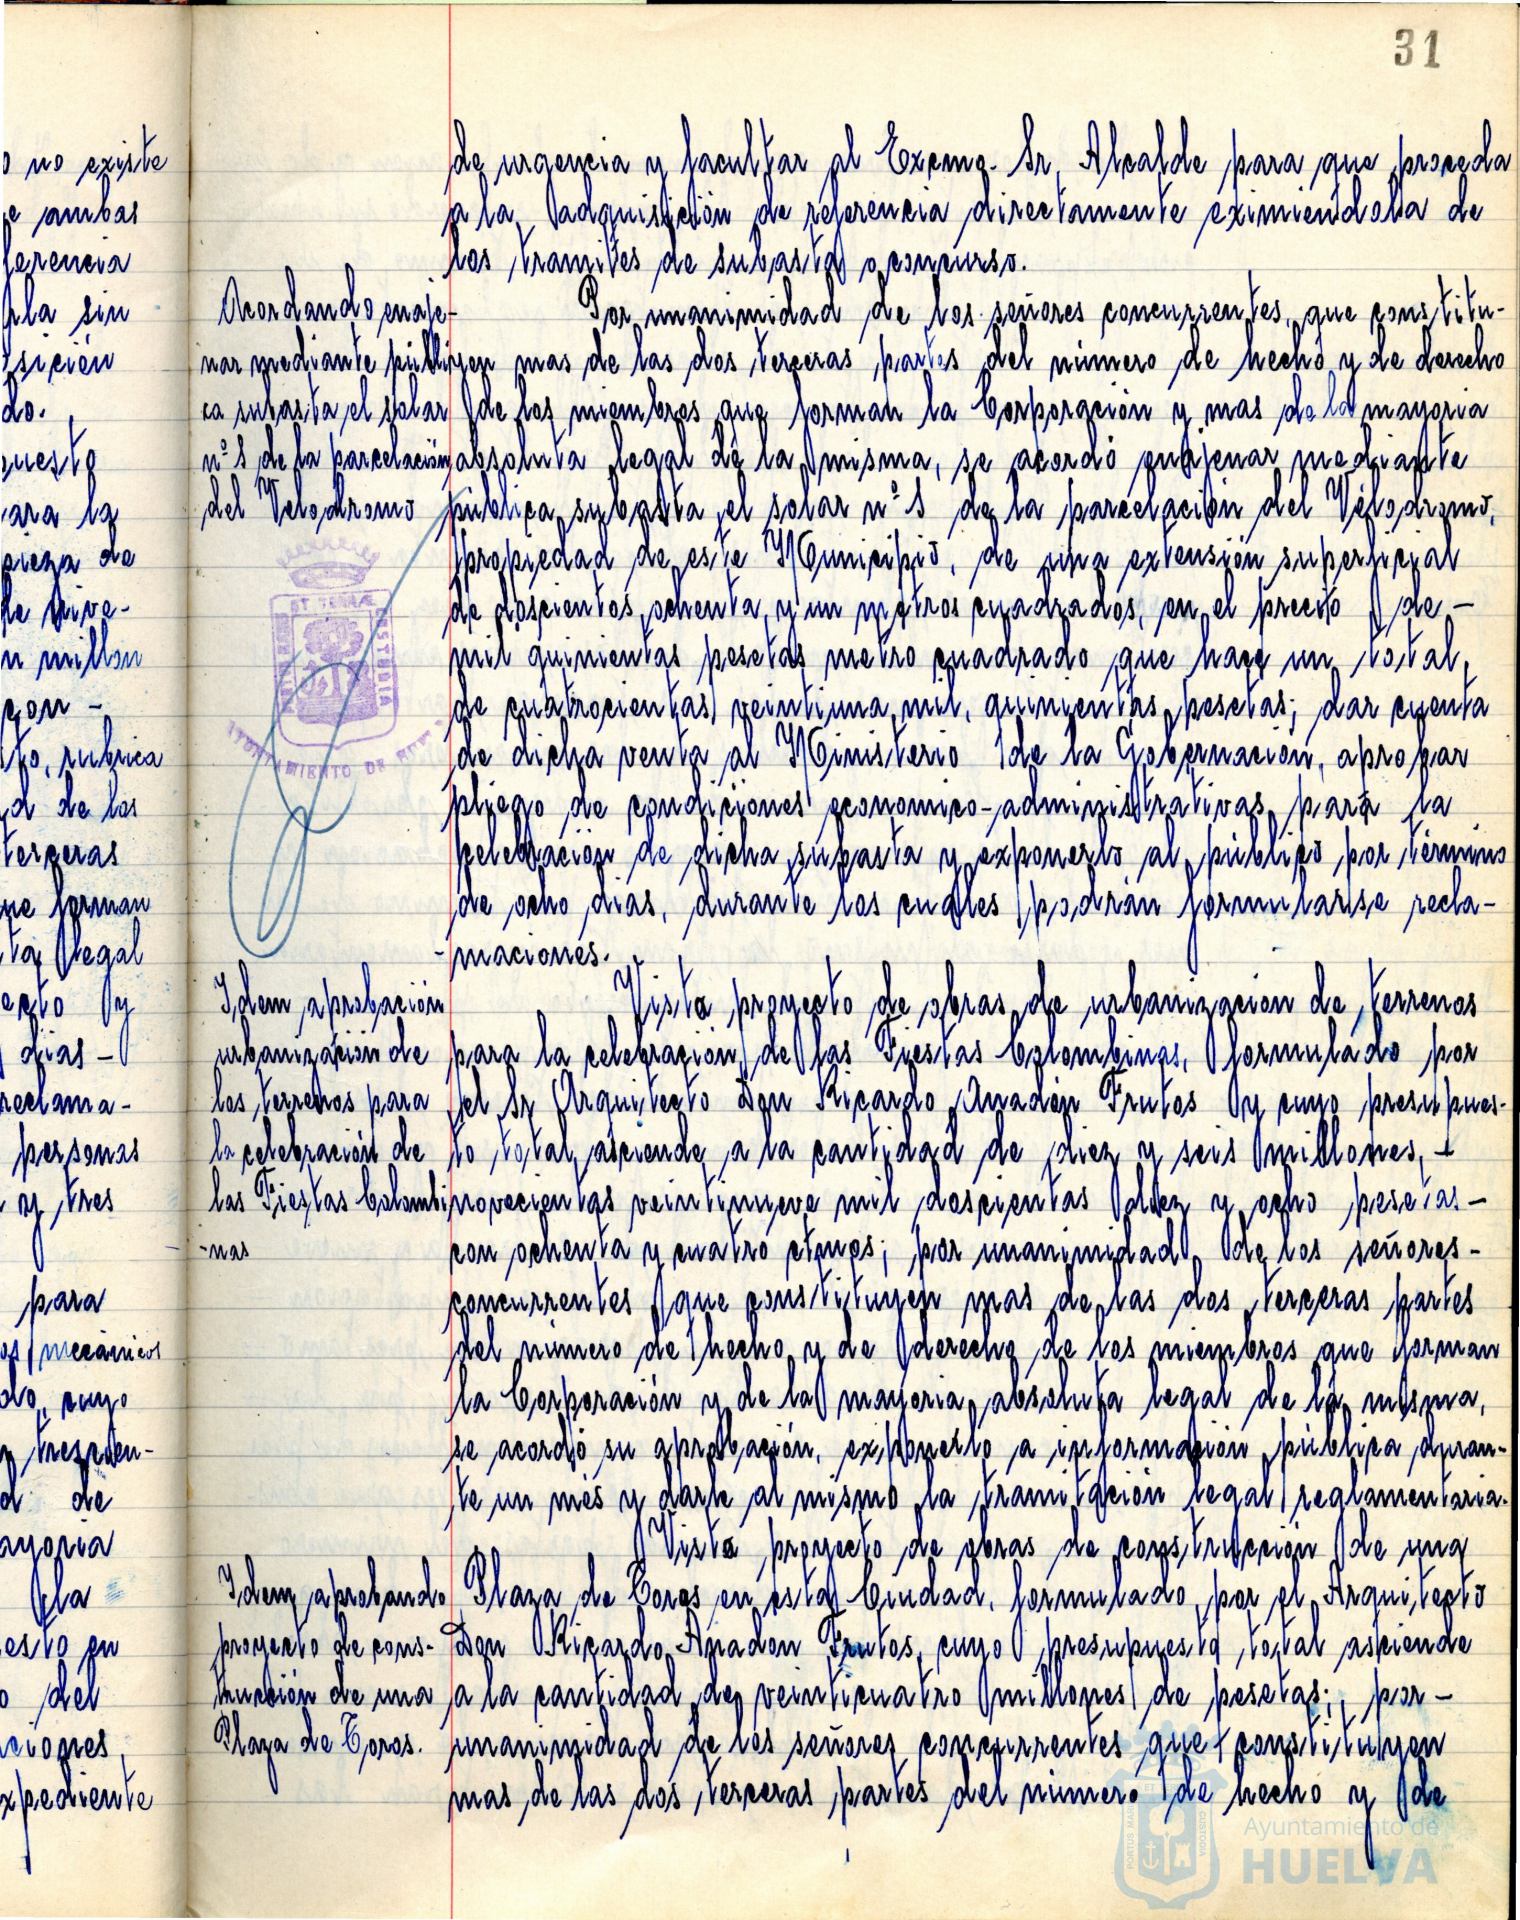 31
de urgencia y facultar al Excmo. Sr. Alcalde para que proceda
a la adquisición de referencia directamente eximiendola de
los tramites de subasta o concurso.
Acordando enaje-
nar mediante públi
ca subasta el solar
nº 1 de la parcelación
del Velodromo
Por unanimidad de los señores concurrentes, que constitu-
yen mas de las dos terceras partes del número de hecho y de derecho
de los miembros que forman la Corporación y mas de la mayoria
absoluta legal de la misma, se acordó enajenar mediante
pública subasta el solar nº 1 de la parcelación del Velodromo,
propiedad de este Municipio, de una extensión superficial
de doscientos ochenta y un metros cuadrados, en el precio de -
mil quinientas pesetas metro cuadrado que hace un total
de cuatrocientas veintiuna mil, quinientas pesetas; dar cuenta
de dicha venta al Ministerio de la Gobernación, aprobar
pliego de condiciones economico-administrativas para la
celebración de dicha subasta y exponerlo al público por término
de ocho dias, durante los cuales podrán formularse recla-
-maciones.
Idem aprobación
urbanización de
los terrenos para
la celebración de
las Fiestas Colombi
-nas
Visto proyecto de obras de urbanización de terrenos
para la celebración de las Fiestas Colombinas, formulado por
el Sr Arquitecto Don Ricardo Anadón Frutos y cuyo presupues-
to total asciende a la cantidad de diez y seis millones, -
novecientas veintinueve mil doscientas diez y ocho pesetas -
con ochenta y cuatro ctmos; por unanimidad de los señores -
concurrentes que constituyen mas de las dos terceras partes
del número de hecho y de derecho de los miembros que forman
la Corporación y de la mayoria absoluta legal de la misma,
se acordó su aprobación, exponerlo a información pública duran-
te un mes y darle al mismo la tramitación legal reglamentaria.
Idem aprobando
proyecto de cons-
trucción de una
Plaza de Toros.
Visto proyecto de obras de construcción de una
Plaza de Toros en esta Ciudad, formulado por el Arquitecto
Don Ricardo Anadon Frutos, cuyo presupuesto total asciende
a la cantidad de veinticuatro millones de pesetas; por -
unanimidad de los señores concurrentes que constituyen
mas de las dos terceras partes del número de hecho y de
AYUNTAMIENTO DE
Ayuntamiento de
HUELVA